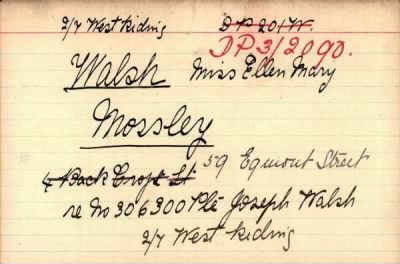 2/7 West Riding D P 201 W.
DP3/2090.
Walsh Miss Ellen Mary
Mossley
4 Back Croft St 59 Egmont Street
re No 306300 Pte Joseph Walsh
2/7 West Riding